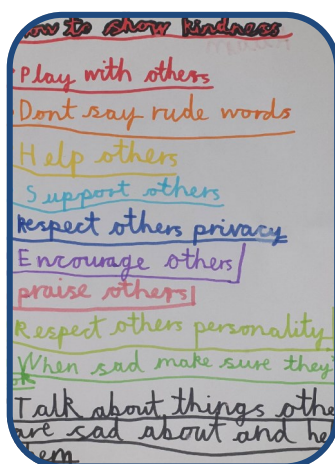 how to show kindness
Play with others
Dont say rude words
Help others
Support others
Respect others privacy
Encourage others
praise others
Respect others personality
When sad make sure they
ok
Talk about things othe
are sad about and he
em